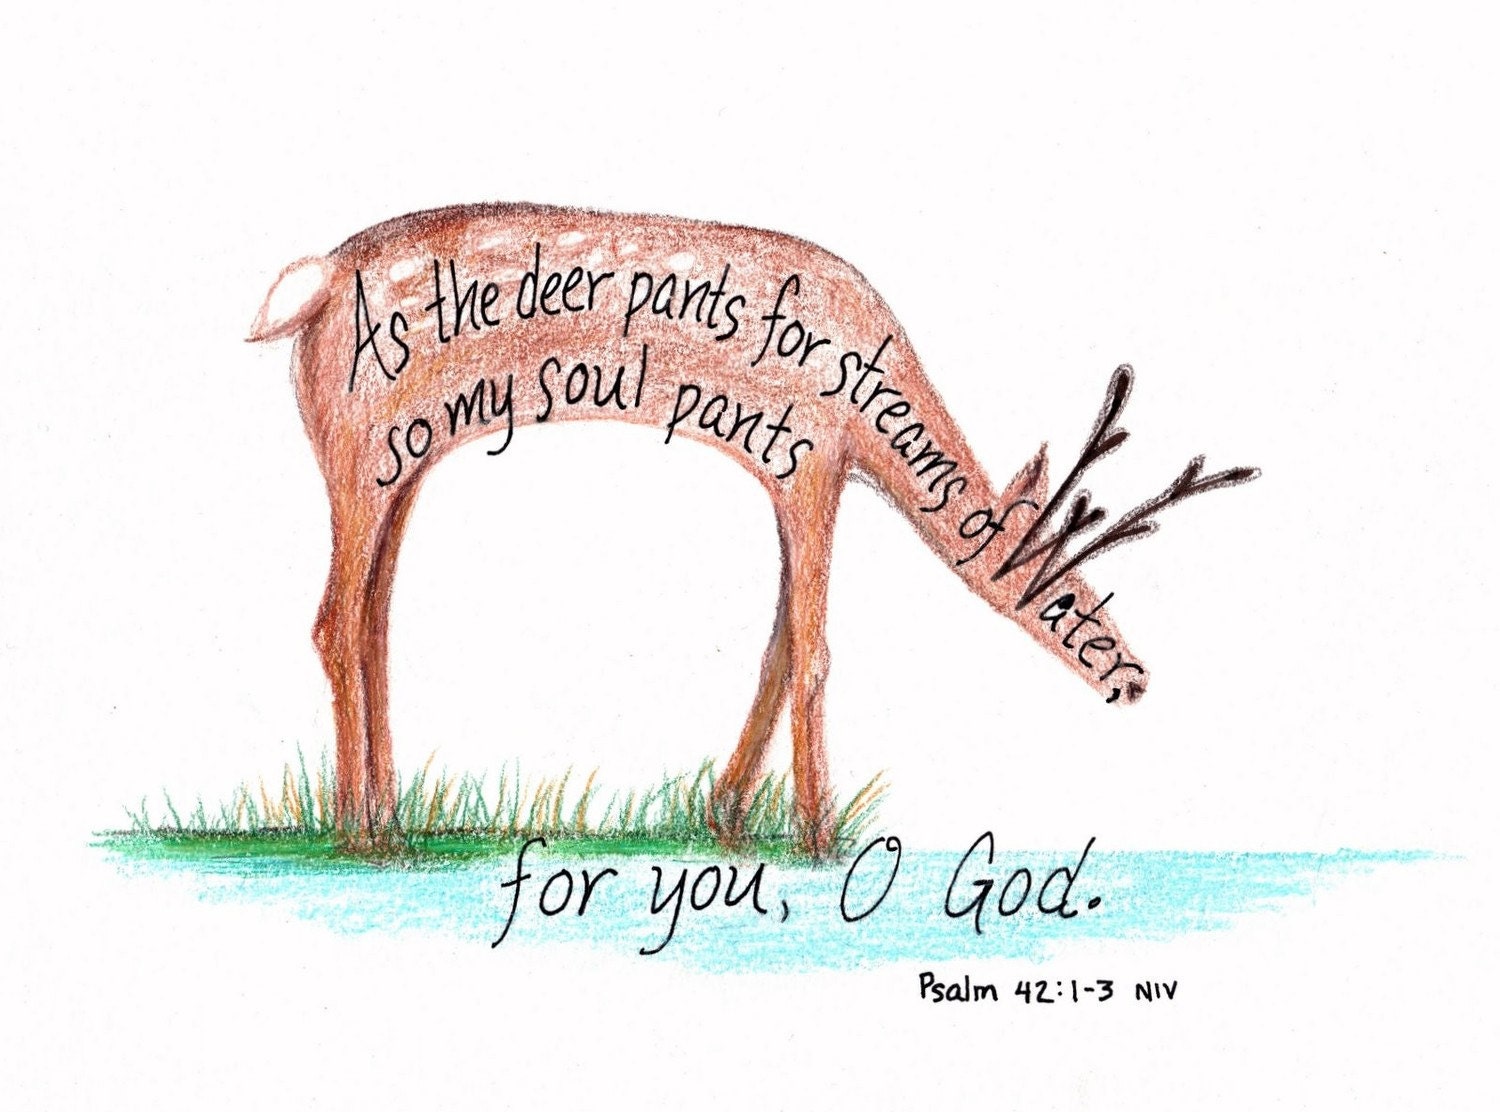 As the deer pants for streams of Water,
so my soul pants
for you, O God.
Psalm 42:1-3 NIV